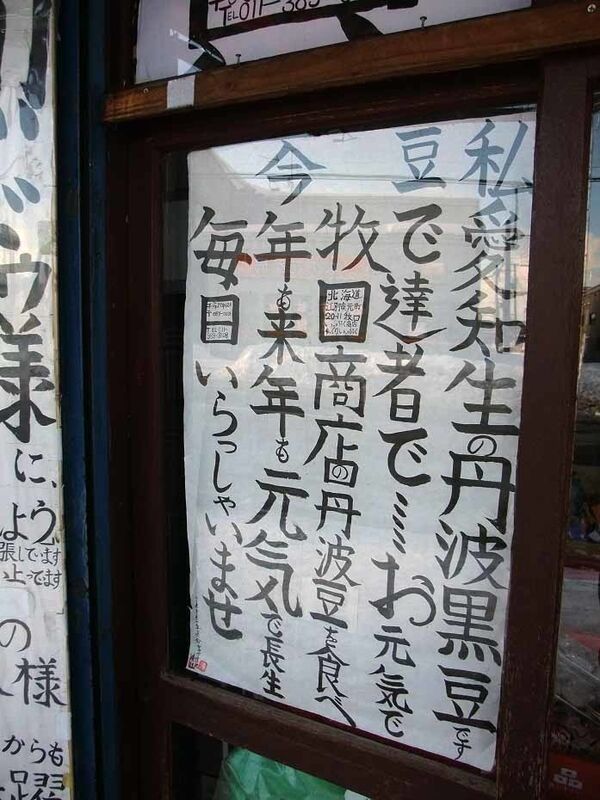 TEL011-385
私愛知生の丹波黒豆です
豆で達者で……お元気で
牧口商店の丹波豆を食べ
今年も来年も元気で長生
毎日いらっしゃいませ
北海道
ドウ様に、よう
張しています
止ってます
の
様
からも
躍
品